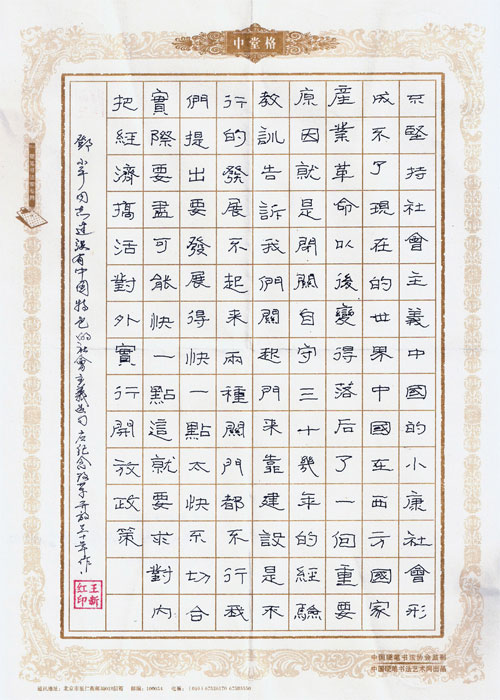 中堂格
不堅持社會主義中國的小康社會形
成不了現在的世界中國在西方國家
產業革命以後變得落后了一個重要
原因就是閉關自守三十幾年的經驗
教訓告訴我們關起門來靠建設是不
行的發展不起來兩種關門都不行我
們提出要發展得快一點太快不切合
實際要盡可能快一點這就要求對內
把經濟搞活對外實行開放政策
鄧小平同志建設有中國特色的社會主義 紀念改革開放三十年作
王新
红印
中国硬笔书法协会监制
中国硬笔书法艺术网出品